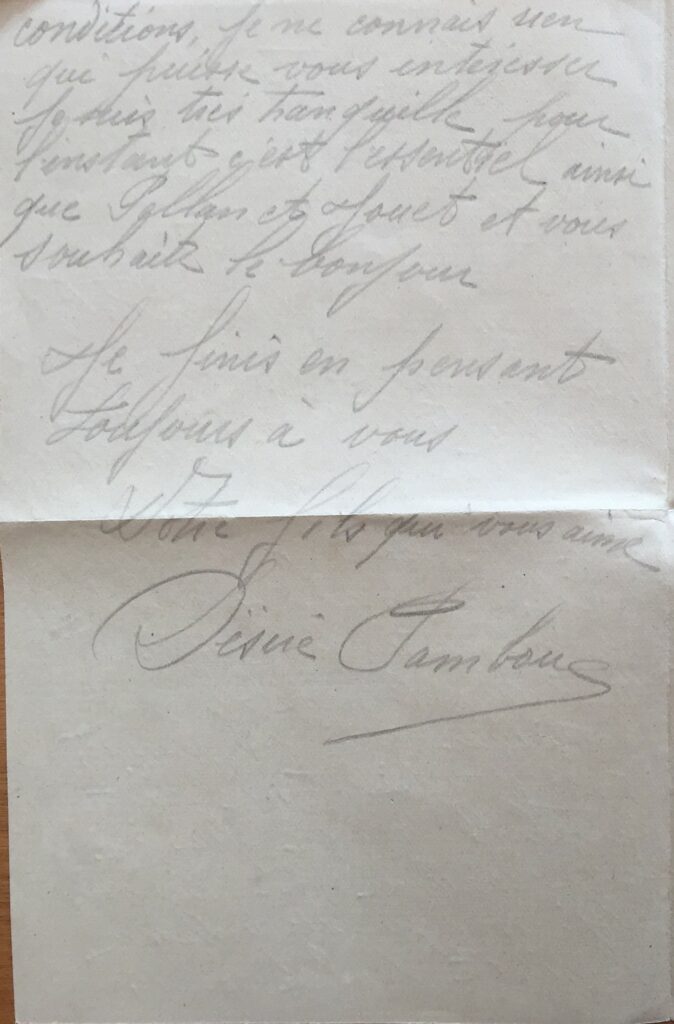 conditions, je ne connais rien
qui puisse vous intéresser
je suis très tranquille pour
l'instant c'est l'essentiel ainsi
que et Jouet et vous
souhaite le bonjour
Je finis en pensant
toujours à vous
Votre fils qui vous aime
Désiré Tambou